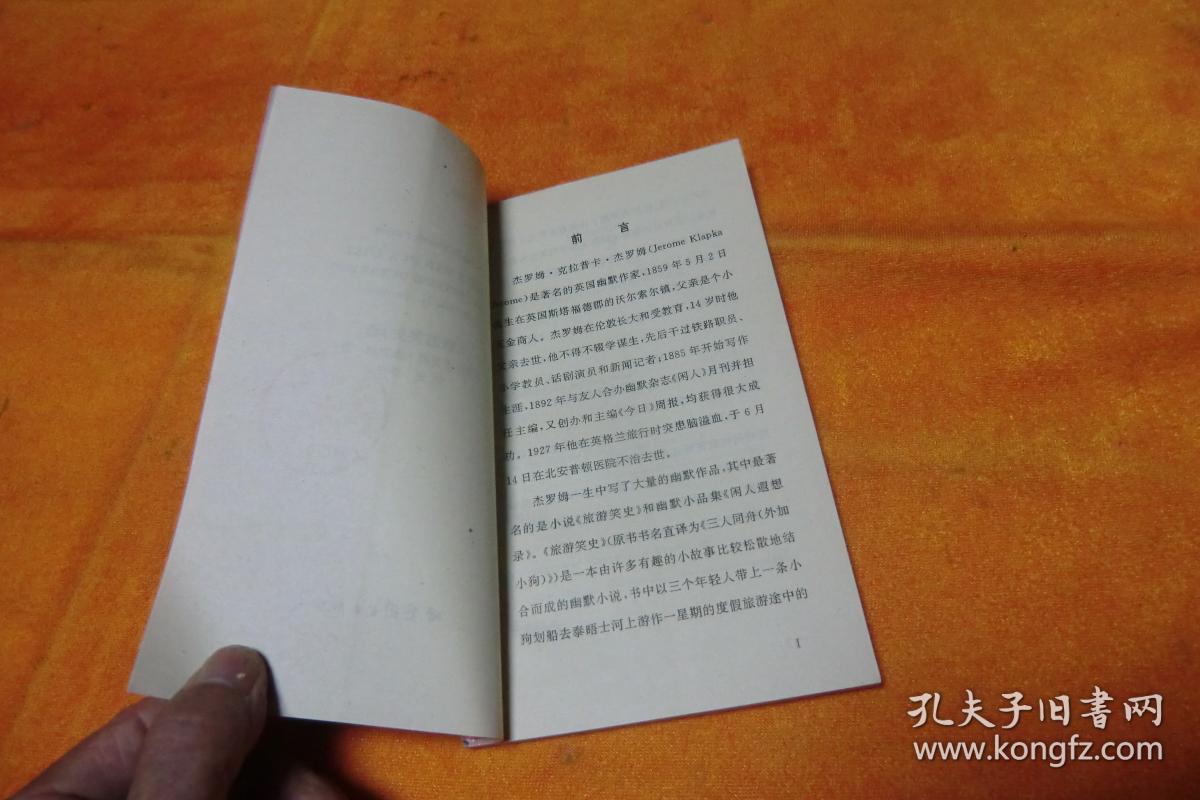 前 言
杰罗姆·克拉普卡·杰罗姆(Jerome Klapka
Jerome)是著名的英国幽默作家,1859年5月2日
生在英国斯塔福德郡的沃尔索尔镇,父亲是个小
金商人。杰罗姆在伦敦长大和受教育,14岁时他
父亲去世,他不得不辍学谋生,先后干过铁路职员、
小学教员、话剧演员和新闻记者;1885年开始写作
生涯,1892年与友人合办幽默杂志《闲人》月刊并担
任主编,又创办和主编《今日》周报,均获得很大成
功。1927年他在英格兰旅行时突患脑溢血,于6月
14日在北安普顿医院不治去世。
杰罗姆一生中写了大量的幽默作品,其中最著
名的是小说《旅游笑史》和幽默小品集《闲人遐想
录》。《旅游笑史》(原书书名直译为《三人同舟(外加
小狗)》)是一本由许多有趣的小故事比较松散地结
合而成的幽默小说,书中以三个年轻人带上一条小
狗划船去泰晤士河上游作一星期的度假旅游途中的
1
孔夫子旧书网
www.kongfz.com